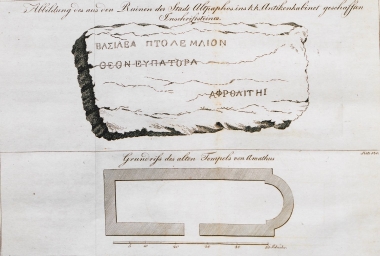 Abbildung des aus den Ruinen der Stadt Altpaphos ins k.k. Antikenkabinet geschaften
Inschriftsteines.
ΒΑΣΙΛΕΑ ΠΤΟΛΕΜΑΙΟΝ
ΘΕΟΝ ΕΥΠΑΤΟΡΑ
ΑΦΡΟΔΙΤΗΙ
Grundriss des alten Tempels von Amathus